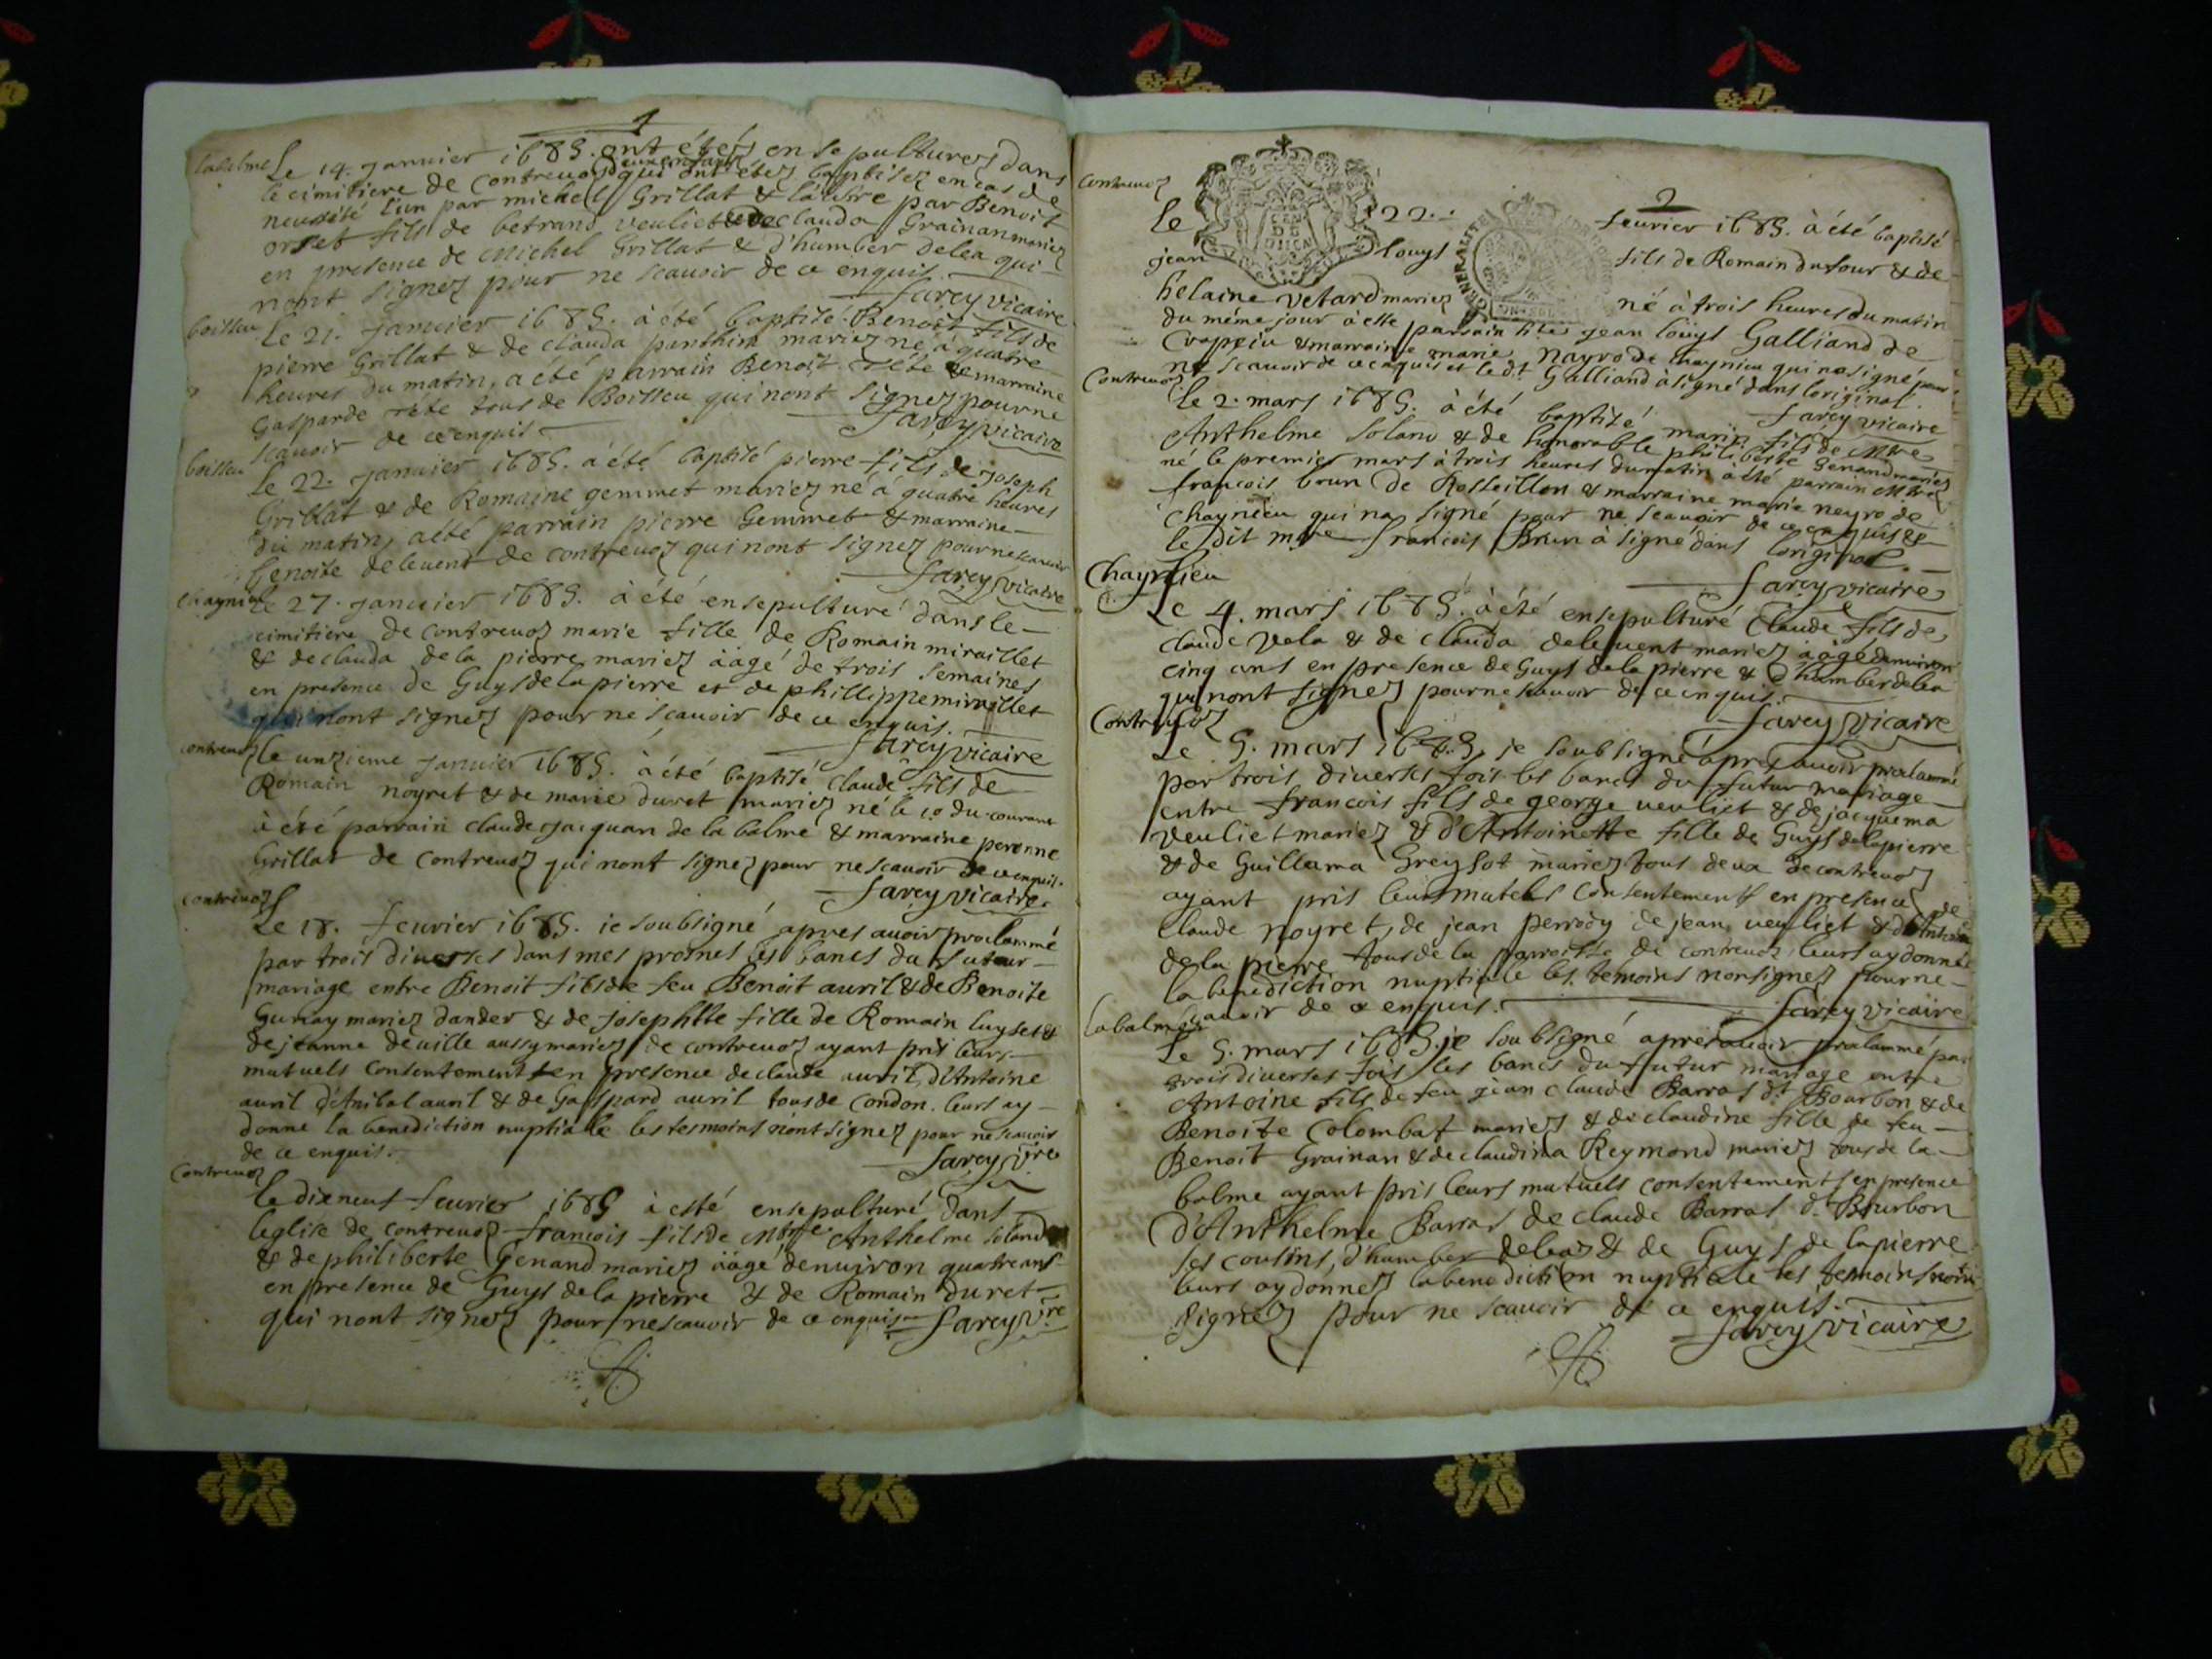 1
labalme Le 14. januier 1689. ont étéz ensepulturez dans
le cimitiere de contreuoz deux enfans qui ont étéz baptisez en cas de
necessité l'un par michel Grillat & l'autre par Benoit
orset fils de betrand veuliet & de clauda Grainan mariez
en presence de Michel Grillat & d'humber delea qui
nont signez pour ne scauoir de ce enquis.
Sarcy vicaire
boisseu Le 21. januier 1689. à été baptisé Benoit fils de
pierre Grillat & de clauda panthin mariez né à quatre
heures du matin, a été parrain Benoit Tête & marraine
Gasparde Tête tous de Boisseu qui nont signez pour ne
scauoir de ce enquis
Sarcy vicaire
boisseu
Le 22. januier 1689. a été baptisé pierre fils de joseph
Grillat & de Romaine gemmet mariez né à quatre heures
du matin, a été parrain pierre Gemmet & marraine
benoite deleuent de contreuoz qui nont signez pour ne scauoir
Sarcy vicaire
chaynieu Le 27. januier 1689. à été ensepulturé dans le
cimitiere de contreuoz marie fille de Romain miraillet
& de clauda de la pierre mariez ààgé de trois semaines
en presence de Guys de la pierre et de phillippe miraillet
qui nont signez pour ne scauoir de ce enquis.
Sarcy vicaire
contreuoz Le unzieme januier 1689. à été baptisé claude fils de
Romain noyret & de marie duret mariez né le 10 du courant
à été parrain claude jacquan de la balme & marraine peronne
Grillat de contreuoz qui nont signez pour ne scauoir de ce enquis.
Sarcy vicaire
contreuoz
Le 18. feurier 1689. ie soubsigné apres auoir proclammé
par trois diuerses dans mes prosnes les bancs du futur
mariage entre Benoit fils de feu Benoit auril & de Benoite
Gunay mariez dander & de josephtte fille de Romain luyset &
de jeanne deuille aussy mariez de contreuoz ayant pris leurs
mutuels consentement en presence de claude auril, d'Antoine
auril d'Anibal auril & de Gaspard auril tous de Condon. leurs ay
donne la benediction nuptiale les tesmoins n'ont signez pour ne scauoir
de ce enquis.
Sarcy vire
Contreuoz
Le dixneuf feurier 1689 à esté ensepulturé dans
leglise de contreuoz francois fils de Mtre Anthelme Soland
& de philiberte Genand mariez ààgé denuiron quatre ans
en presence de Guys de la pierre & de Romain duret
qui nont signez pour ne scauoir de ce enquis Sarcy vire
2
Contreuoz
Le 22. feurier 1689. à été baptisé
jean louys fils de Romain dufour & de
helaine vetard mariez né à trois heures du matin
du méme jour à este parrain sr jean loüys Galliand de
Crappeu & marraine marie nayro de chaynieu qui na signé pour
ne scauoir de ce enquis et le dt Galliand à signé dans loriginal.
Sarcy vicaire
Contreuoz
Le 2. mars 1689. à été baptisé marin fils de Mtre
Anthelme Soland & de honorable philiberte Genand mariez
né le premier mars à trois heures du matin à été parrain Mtre
francois brun de Rosseillon & marraine marie neyro de
chaynieu qui na signé pour ne scauoir de ce enquis &
le dit mtre francois Brun à signé dans loriginal.
Sarcy vicaire
Chaynieu
Le 4. mars 1689. à été ensepulturé Claude fils de
claude vela & de clauda deleuent mariez aagé denuiron
cinq ans en presence de Guys de la pierre & d'humber delea
qui nont signez pour ne scauoir de ce enquis.
Sarcy vicaire
Contreuoz
Le 5. mars 1689. je soubsigné apres auoir proclammé
par trois diuerses fois les bancs du futur mariage
entre francois fils de george veuliet & de jacquema
veuliet mariez & d'Antoinette fille de Guys de la pierre
& de Guillama Greysot mariez tous deux de contreuoz
ayant pris leurs mutels consentements en presence de
Claude noyret, de jean perrody de jean veuliet & d'Antoine
de la pierre tous de la parroisse de contreuoz, leurs ay donnée
la benediction nuptiale les temoins nonsignez pour ne
scauoir de ce enquis.
Sarcy vicaire
labalme
Le 5. mars 1689. je soubsigné apres auoir proclammé par
trois diuerses fois les bancs du futur mariage entre
Antoine fils de feu jean claude Barras dt Bourbon & de
Benoite Colombat mariez & de claudine fille de feu
Benoit Grainan & de claudina Reymond mariez tous de la
balme ayant pris leurs mutuels consentements en presence
d'Anthelme Barras de claude Barras dt Bourbon
ses cousins, d'humber deleaz & de Guys de la pierre
leurs ay donnez la benediction nuptiale les temoins nont
signez pour ne scauoir de ce enquis.
Sarcy vicaire